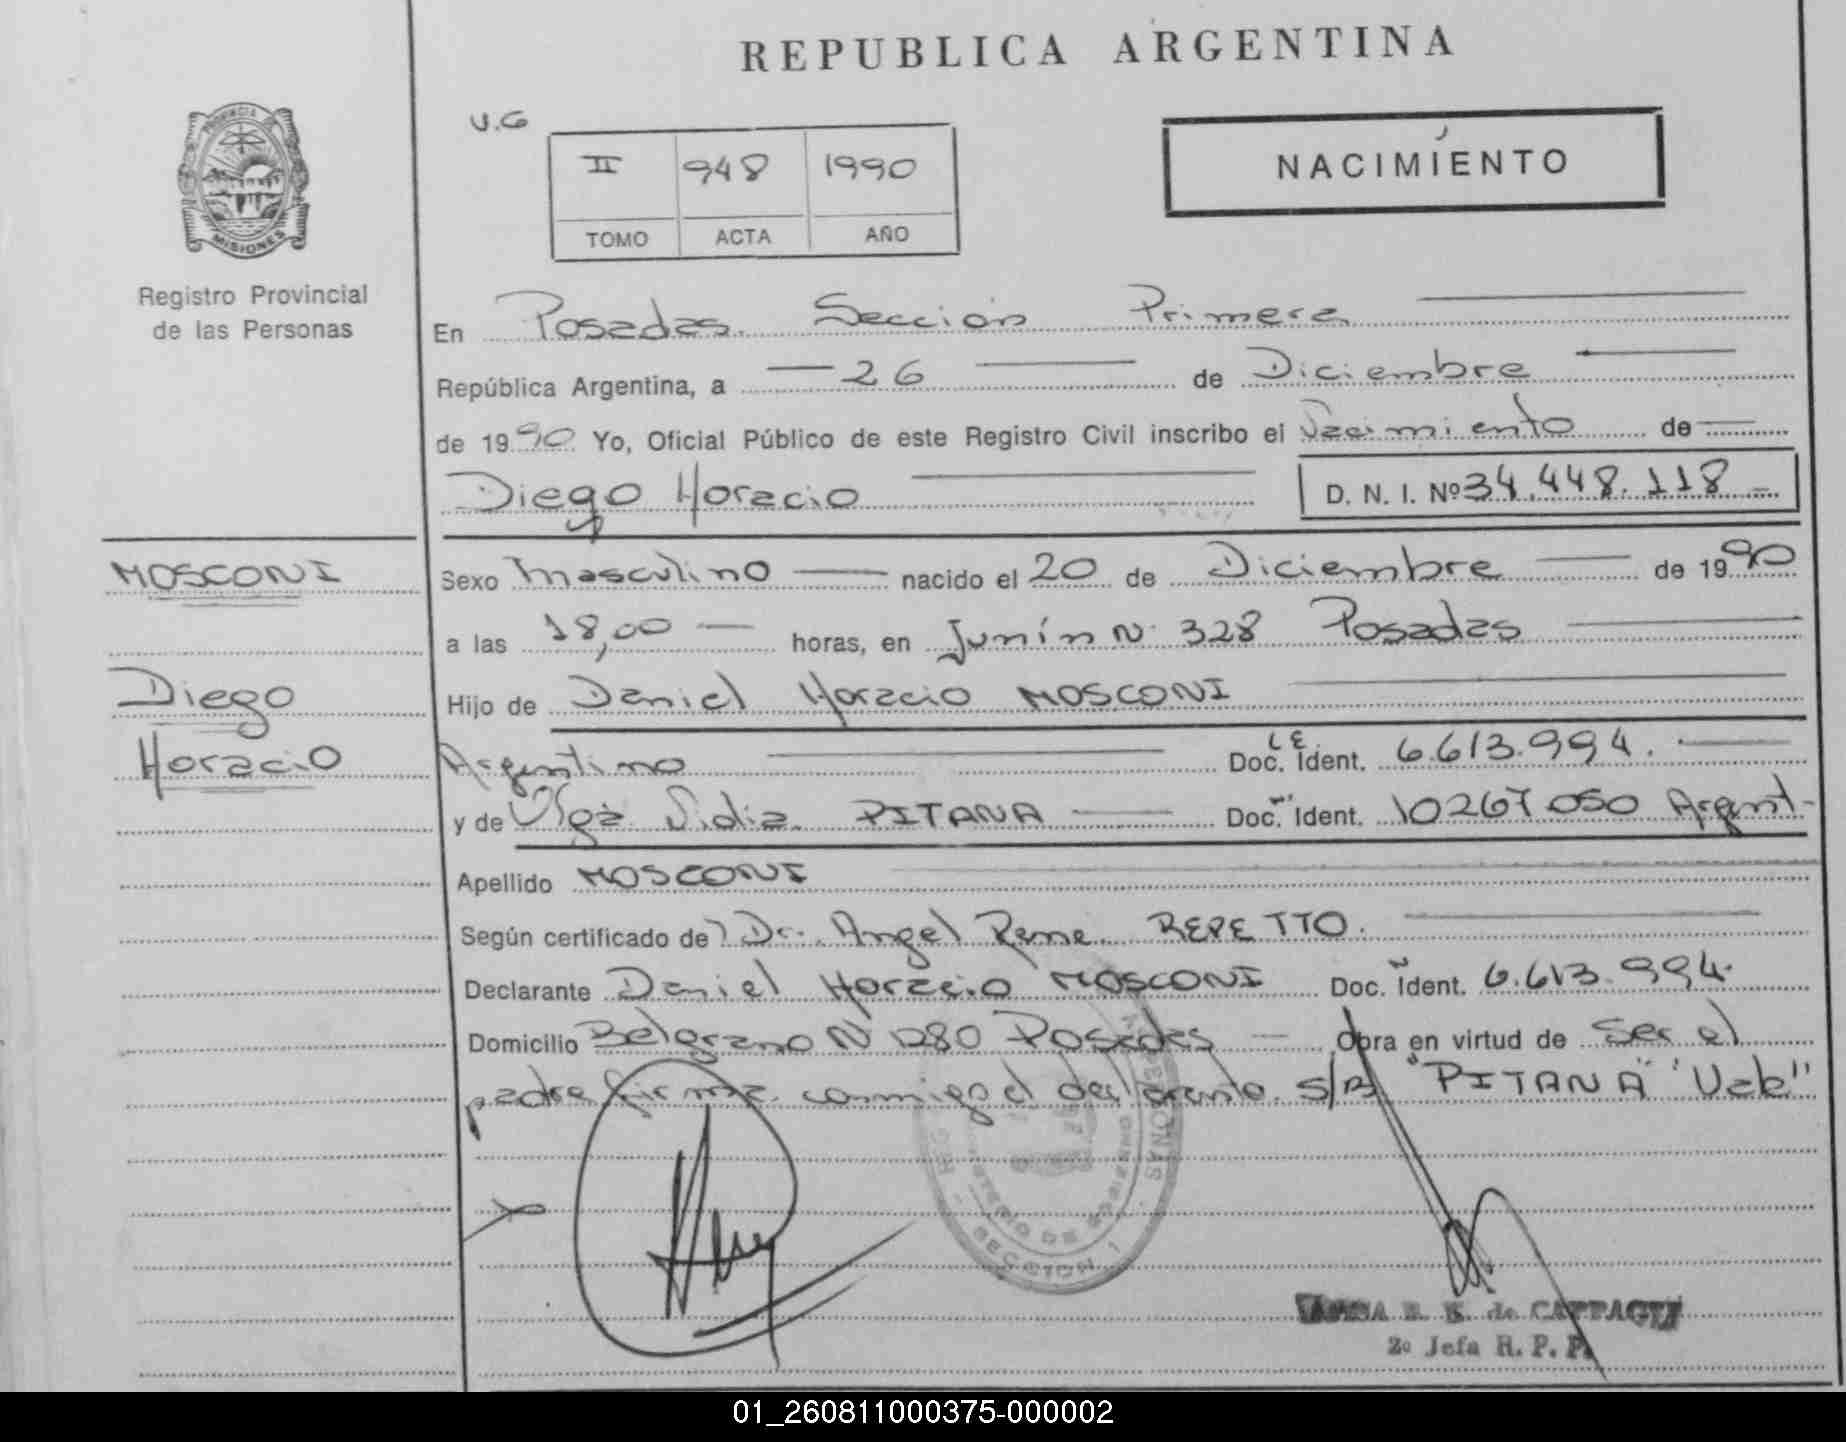 REPUBLICA ARGENTINA
PROVINCIA DE
MISIONES
Registro Provincial
de las Personas
V.G
II 948 1990
TOMO ACTA AÑO
NACIMIENTO
En Posadas. Sección Primera
República Argentina, a 26 de Diciembre
de 1990 Yo, Oficial Público de este Registro Civil inscribo el Nacimiento de
Diego Horacio D. N. I. Nº 34.448.118
MOSCONI
Diego
Horacio
Sexo masculino nacido el 20 de Diciembre de 1990
a las 18,00 horas, en Junín N. 328 Posadas
Hijo de Daniel Horacio MOSCONI
Argentino Doc. Ident. LE 6.613.994.
y de Olga Lidia PITANA Doc. Ident. 10267050 Argent-
Apellido MOSCONI
Según certificado de Dr. Angel Rene REPETTO.
Declarante Daniel Horacio MOSCONI Doc. Ident. 6.613.994.
Domicilio Belgrano N 1280 Posadas Obra en virtud de ser el
padre firma conmigo el declarante. S/B "PITANA" "Vale"
SECCION 1
de CARPAGU
2º Jefa R. P. P.
01_260811000375-000002